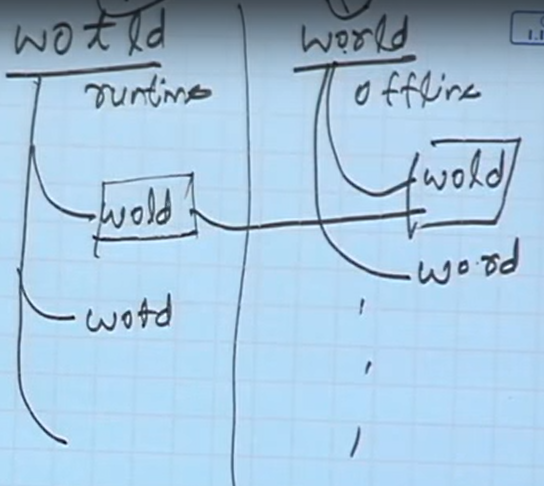 wotld
runtime
wold
wotd
world
offline
wold
word